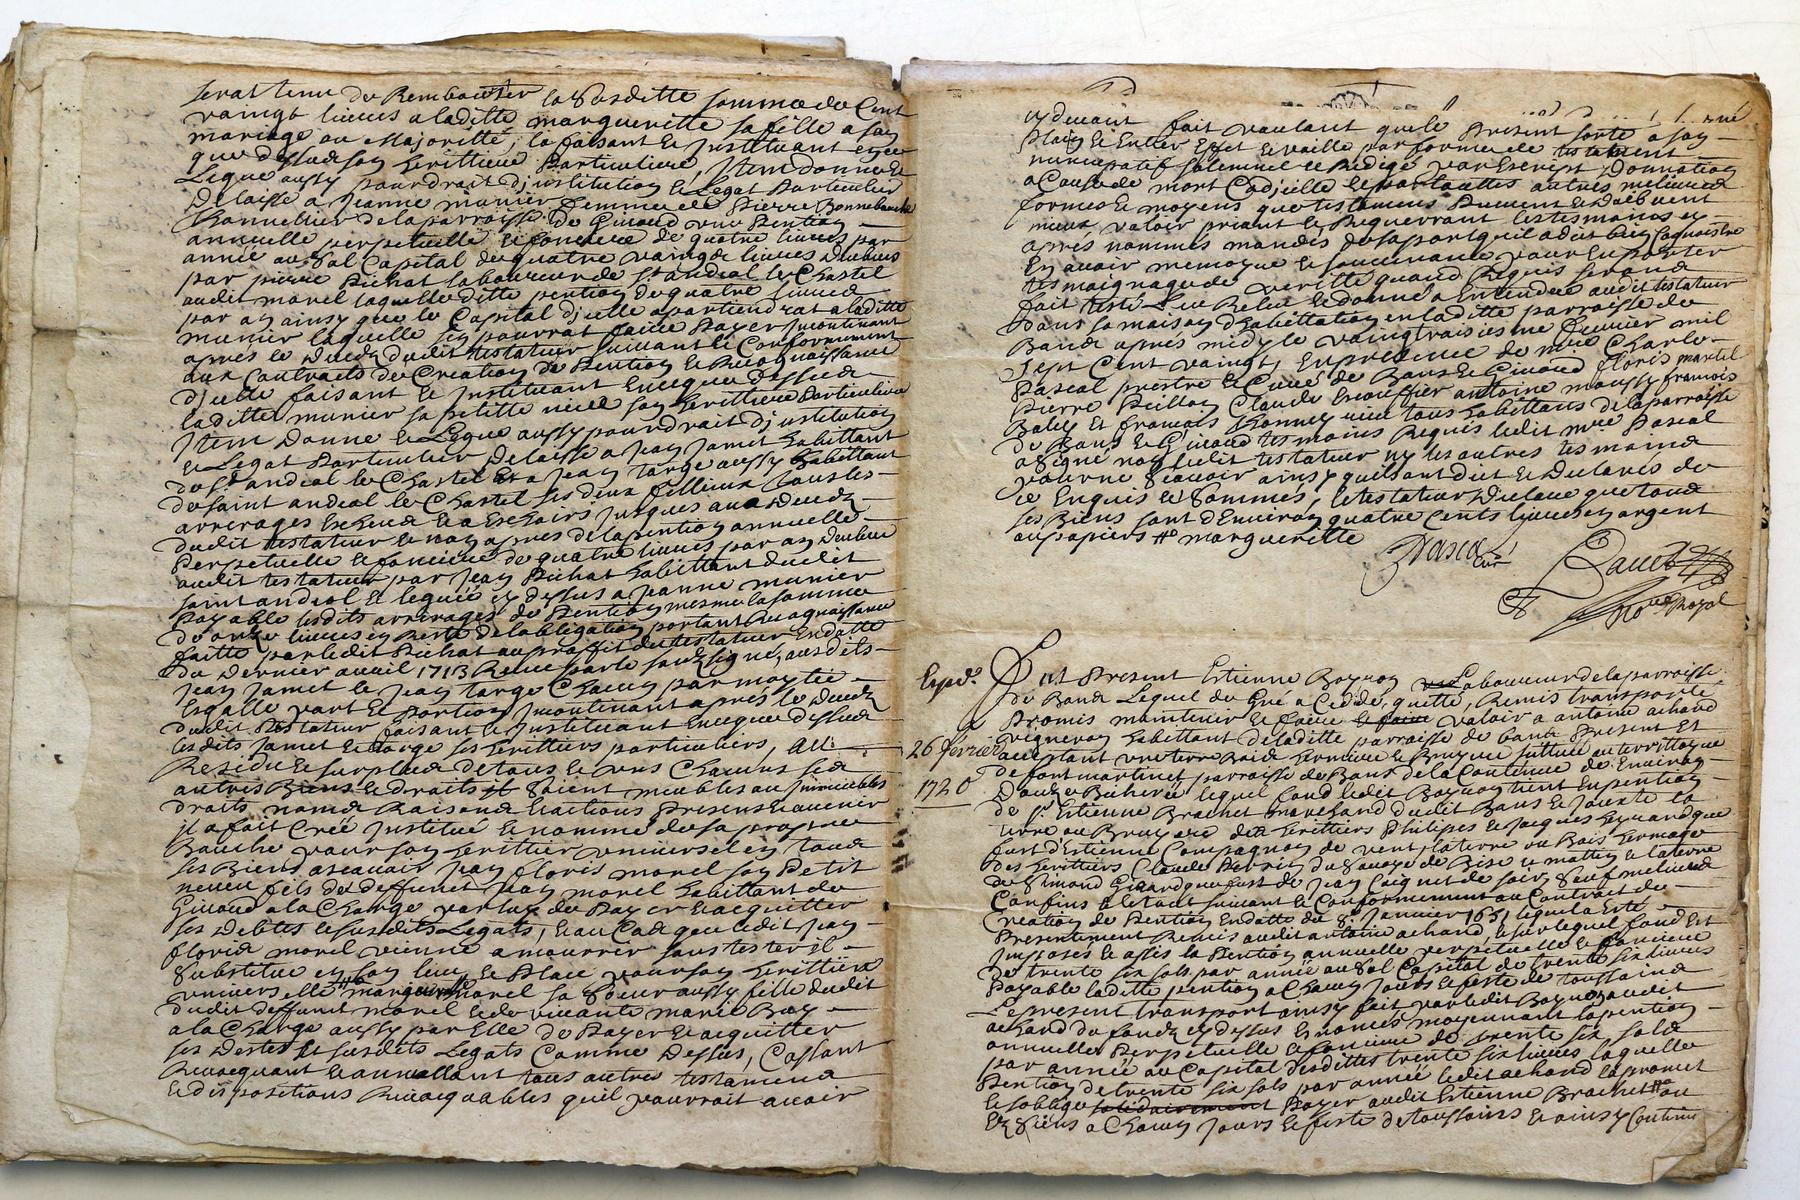 serat tenu de Rembourser la Susditte somme de Cent
vaingt livres a laditte margueritte sa fille a son
mariage ou Majoritté, la faisant et Instituant en ce
que dessus son herittiere Particuliere, Item donne et
Legue aussy pour droit d'institution et Legat Particulier
Delaisse a Jeanne munier femme de Pierre Bonnebouche
Chanellier de la parroisse de Givord une Pention
annuelle perpetuelle et fonciere de quatre livres par
année au Sol Capital de quatre vaingt livres deubvus
par pierre Pichat laboureur de st andeal le Chastel
audit morel laquelle ditte pention de quatre livres
par an ainsy que le Capital d'jcelle apartiendrat a laditte
munier laquelle sen pourrat faire Payer Incontinant
apres le deceds dudit testateur suivant et Conformement
aux Contracts de Creation de Pention et Recognoissance
d'jcelle faisant et Instituant en ce que dessus
laditte munier sa petitte niece son herittiere particuliere
Item donne et Legue aussy pour droit d'institution
et Legat Particulier delaisse a Jean Jamet habittant
de st andeal le Chastel et a Jean targe aussy habittant
de saint andeal le Chastel ses deux fillieux tous les
arrerages escheus et a Escheoirs jusques au deceds
dudit testateur et non apres de la pention annuelle
Perpetuelle et fonciere de quatre livres par an deubue
audit testateur par Jean Pichat habittant dudit
saint andeal et leguée cy dessus a Jeanne munier
Payable lesdits arrerages de Pention mesme la somme
de onze livres en Reste de lobligation portant Recognoissance
faitte par ledit Pichat au proffit du testateur en datte
du dernier avril 1713 Receue par le soubsigné, ausdits
Jean Jamet et Jean targe Chacun par moytié
Esgalle part et portion Incontinant apres le deceds
dudit testateur faisant et Instituant en ce que dessus
lesdits Jamet et targe ses herittiers particuliers, Au
Residu et surplus de tous et uns Chacuns ses
autres Biens et droits soient meubles ou Immeubles
droits noms Raisons et actions Presens et avenir
il a fait Créé Institué et nommé de sa propre
Bouche pour son herittier universel en tous
ses Biens ascavoir Jean floris morel son Petit
neveu fils de deffunct Jean morel habittant de
Givord a la Charge par luy de Payer et acquitter
ses debtes et susdits Legats, et au Cas que ledit Jean
floris morel vienne a mourrir sans tester il
Substitue en son lieu et Place pour son herittiere
universelle marguerite morel sa Soeur aussy fille dudit
dudit deffunt morel et de vivante marie Boy
a la Charge aussy par Elle de Payer et acquitter
ses debtes et susdits Legats Comme dessus, Cassant
Revocquant et annullant tous autres testamens
et dispositions Revocquables quil pourrait avoir
cy devant fait voulant que le Present sorte a son
Plain et Entier Effet et vaille par forme de testament
nuncupatif solemnel et Redigé par Escript donnation
a Cause de mort Codjcille et par touttes autres meilieures
formes et moyens que testamens Peuvent et doibvent
mieux valoir priant et Requerrant les tesmoins cy
apres nommés mandés de sa part quil a dit bien Cognoistre
En avoir memoyre et souvenance pour En porter
tesmoignage de veritté quand Requis seront
fait testé Leu Releu et donné a Entendre audit testateur
Dans sa maison d'habittation en laditte parroisse de
Bans apres midy le vaingtroisiesme feuvrier mil
Sept Cent vaingt, En présence de mre Charle
Pascal prestre et Curé de Bans et Givord floris martel
Pierre Peillon Claude Escoffier antoine moussy françois
Baley et françois Bonnev tous habittans de la parroisse
de Bans et Givord tesmoins Requis ledit mre Pascal
a Signé non ledit testateur ny les autres tesmoins
pour ne Scavoir ainsy quils ont dit et declaré de
ce Enquis et Sommés, le testateur declare que tous
ses Biens sont d'Environ quatre cents livres en argent
ou papiers # marguerritte
Pascal curé
Baud
Nore Royal
Exped.
26 février
1720
Fut Present Estienne Boyron Laboureur de la parroisse
de Bans Lequel de Gré a Ceddé, quitté, Remis transporté
Promis maintenir et faire valoir a antoine achard
vigneron habittant de laditte parroisse de bans Present Et
acceptant une terre Bois hermine et Bruyere sittuée au territtoyre
de font martinet parroisse de Bans de la Contenue de Environ
douze Bicherée lequel fond ledit Boyron tient En pention
de sr Estienne Brachet marchand dudit Bans et Jouxte la
terre ou Bruyere des herittiers Philipes et Jacques
fust d'Estienne Compagnon de vent, la terre ou Bois hermage
des herittiers Claude Persin du Savoye de Bise et mattin et la terre
de Simond Girard que fust de Jean Coignet de soir, Sauf meilieurs
Confins et le tout suivant et Conformement au Contract de
Création de Pention En datte du 8e Janvier 1651 lequel a Esté
Presentement Remis audit antoine achard, et sur lequel fond Est
Imposés et assis la Pention annuelle perpetuelle et fonciere
de trente six sols par année au Sol Capital de trente six livres
Payable laditte pention a Chacun Jours et feste de toussains
Le present transport ainsy fait par ledit Boyron audit
achard du fonds cy dessus Enoncés moyennant la pention
annuelle Perpetuelle et fonciere de trente six sols
par année au Capital desdittes trente six livres laquelle
Pention de trente six sols par année ledit achard la promet
et soblige solidairement Payer audit Estienne Brachet # ou
Es Siens a Chacun Jours et feste de toussains et ainsy Continuer